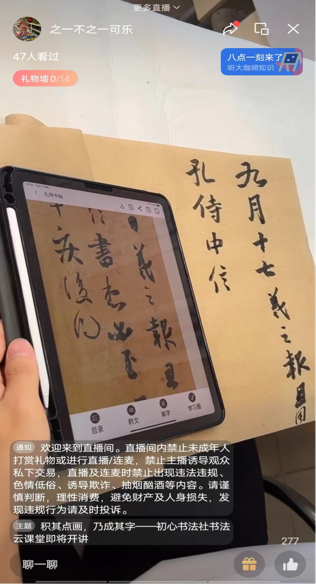 更多直播
之一不之一可乐
47人看过
礼物墙 0/14
八点一刻来了
听大咖唠知识
九月十七羲之報
孔侍中信
孔侍中帖
羲之報且
信書想必至
十疾後问
目录
释文
单字
学习圈
通知 欢迎来到直播间。直播间内禁止未成年人
打赏礼物或进行直播/连麦，禁止主播诱导观众
私下交易，直播及连麦时禁止出现违法违规、
色情低俗、诱导欺诈、抽烟酗酒等内容。请谨
慎判断，理性消费，避免财产及人身损失，发
现违规行为请及时投诉。
主题 积其点画，乃成其字——初心书法社书法
云课堂即将开讲
277
聊一聊